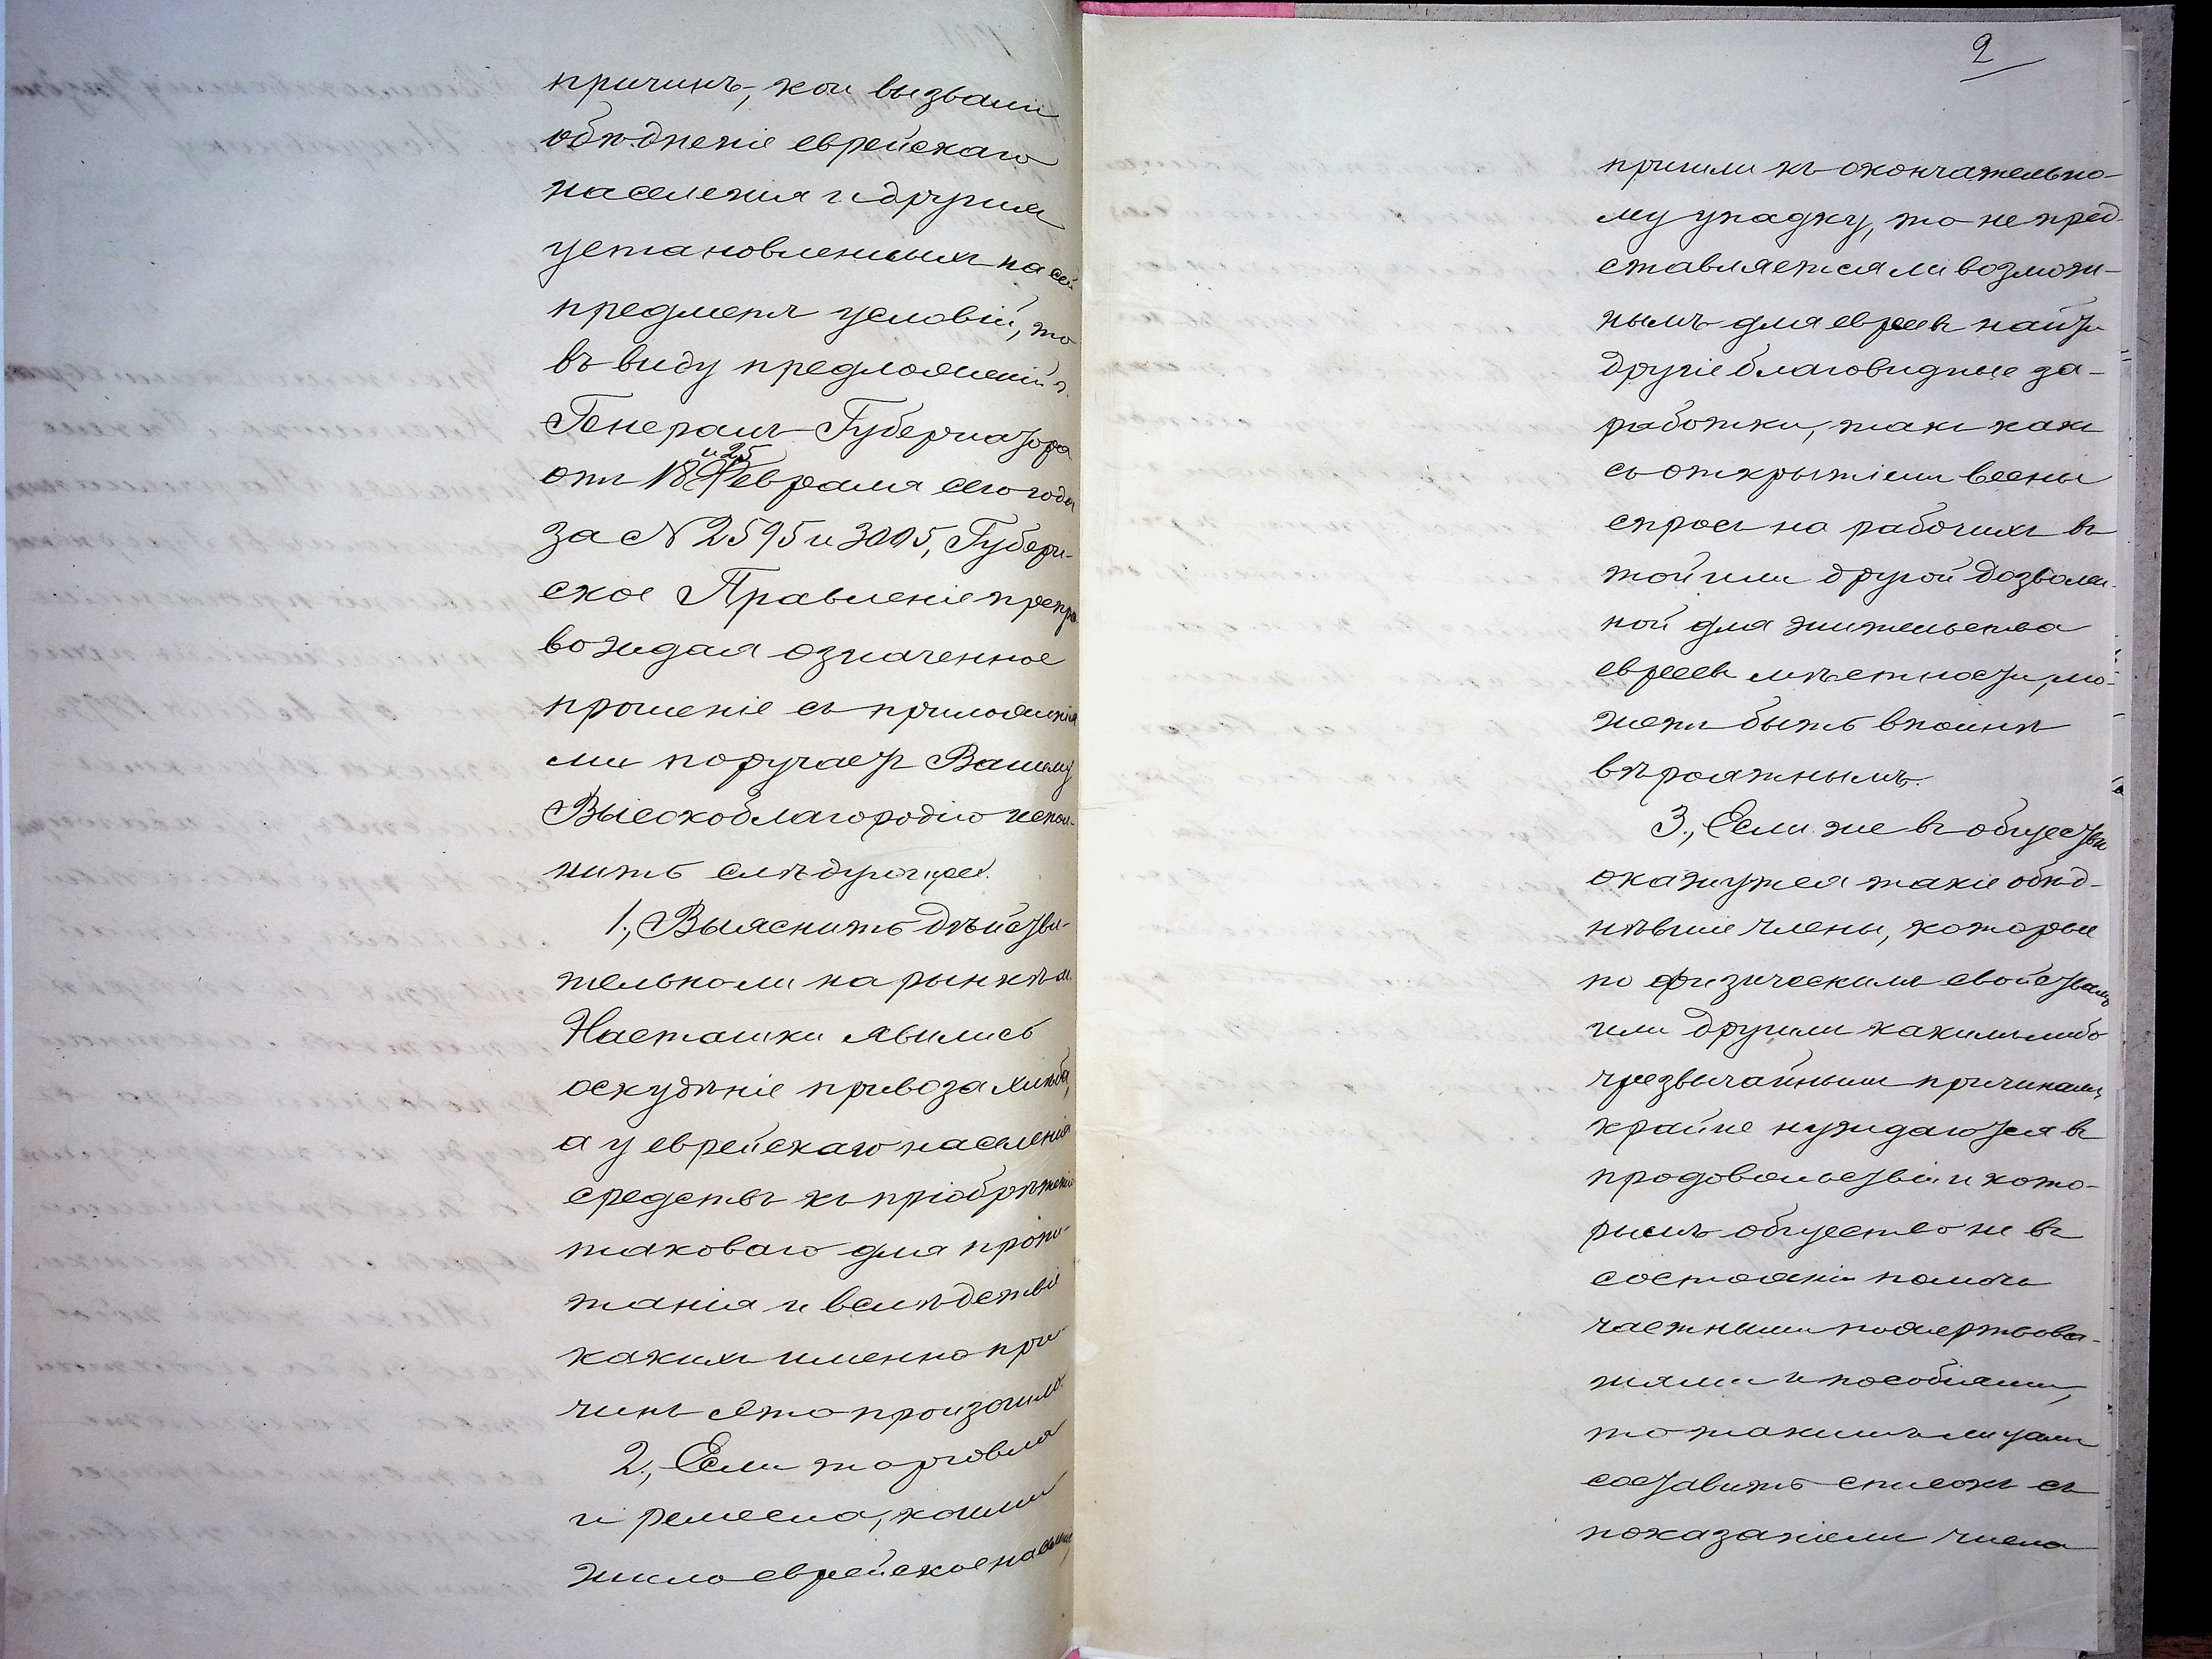 причинъ, кои вызвали
обѣднѣніе еврейскаго
населенія и другія
установленныхъ на сей
предметъ условій, то
въ виду предложеній г.
Генералъ-Губернатора
отъ 18 и 25 Февраля сего года
за № 2595 и 3005, Губерн-
ское Правленіе препро
вождая означенное
прошеніе съ приложенія
ми поручаетъ Вашему
Высокоблагородію испол-
нить слѣдующее.
1., Выяснить дѣйстви-
тельно ли на рынкѣ м.
Насташки явились
оскудѣніе привоза хлѣба,
а у еврейскаго населенія
средствъ къ пріобрѣтенію
таковаго для пропи-
танія и вслѣдствіе
какихъ именно при-
чинъ это произошло.
2., Если торговля
и ремесла, коими
жило еврейское населеніе,
2
пришли къ окончательно-
му упадку, то не пред-
ставляется ли возмож-
нымъ для евреевъ найти
другіе благовидные за-
работки, такъ какъ
съ открытіемъ весны
спросъ на рабочихъ въ
той или другой дозволен-
ной для жительства
евреевъ мѣстности, мо-
жетъ быть вполнѣ
вѣроятнымъ.
3., Если же въ обществѣ
окажутся такіе обѣд-
нѣвшіе члены, которые
по физическимъ свойствамъ
или другимъ какимъ либо
чрезвычайнымъ причинамъ,
крайне нуждаются въ
продовольствіи и кото-
рымъ общество не въ
состояніи помочь
частными пожертвова-
ніями и пособіями,
то такимъ лицамъ
составить списокъ съ
показаніемъ числа